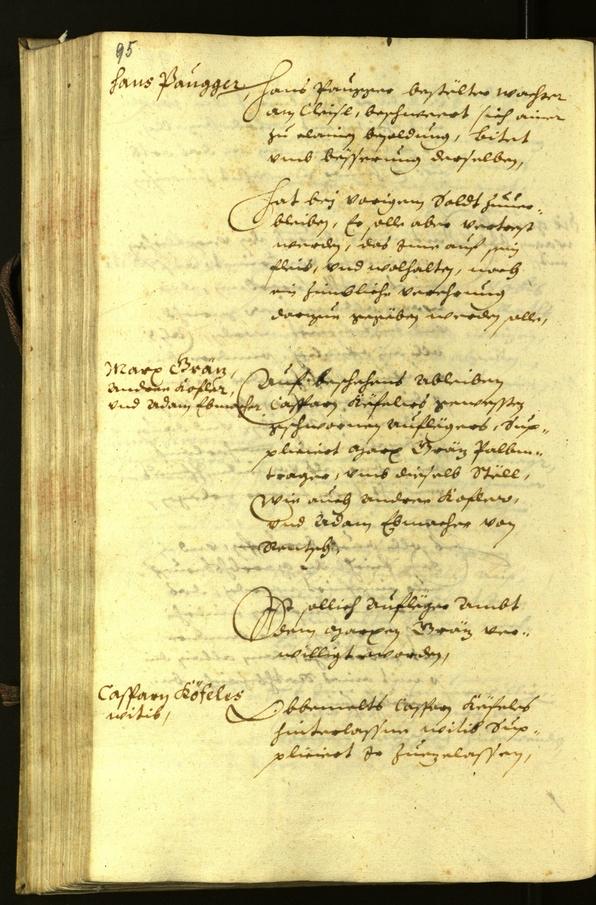 95
Hans Paungger
Hans Paungger bestelter wachter
am Cleisl, beschwerert sich ainer
zu clainen besoldung, bitet
umb besserung derselben,
Hat bey vorigem Soldt zuuer-
bleiben, Er solle aber vertröst
werden, das Ime auf sein
fleis, und wolhalten, noch
ein zimbliche verehrung
darzue gegeben werden solle,
Marx Gräz,
Andree Kofler,
und Adam Ebmacher
Auf beschehens Ableiben
Caspern Köfeles gewesten
geschwornen Auflegers, Sup-
pliciert Marx Gräz Palbm-
trager, umb dieselb Stell,
Wie auch Andree Kofler,
und Adam Ebmacher von
Rentsch,
Ist solich Aufleger Ambt
dem Marxen Gräz ver-
williget worden,
Caspern Köfeles
witib,
Obbemelts Caspern Köfeles
hinterlassne witib Sup-
pliciert Ir zuezelassen,